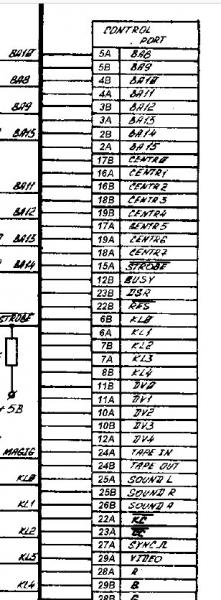 CONTROL
PORT
5A BA8
5B BA9
4B BA10
4A BA11
3B BA12
3A BA13
2B BA14
2A BA15
17B CENTR0
16A CENTR1
16B CENTR2
18B CENTR3
19B CENTR4
17A CENTR5
19A CENTR6
18A CENTR7
15A STROBE
12B BUSY
23B DSR
22B RES
6B KL0
6A KL1
7B KL2
7A KL3
8B KL4
11B DV0
11A DV1
10A DV2
10B DV3
12A DV4
24A TAPE IN
24B TAPE OUT
25A SOUND L
25B SOUND R
26B SOUND A
22A
23A
27A SYNC
29A VIDEO
28A R
29B B
28B G
BA10
BA8
BA9
BA15
BA11
BA12
BA13
BA14
STROBE
+5B
MAGIC
KL0
KL1
KL2
KL3
KL4